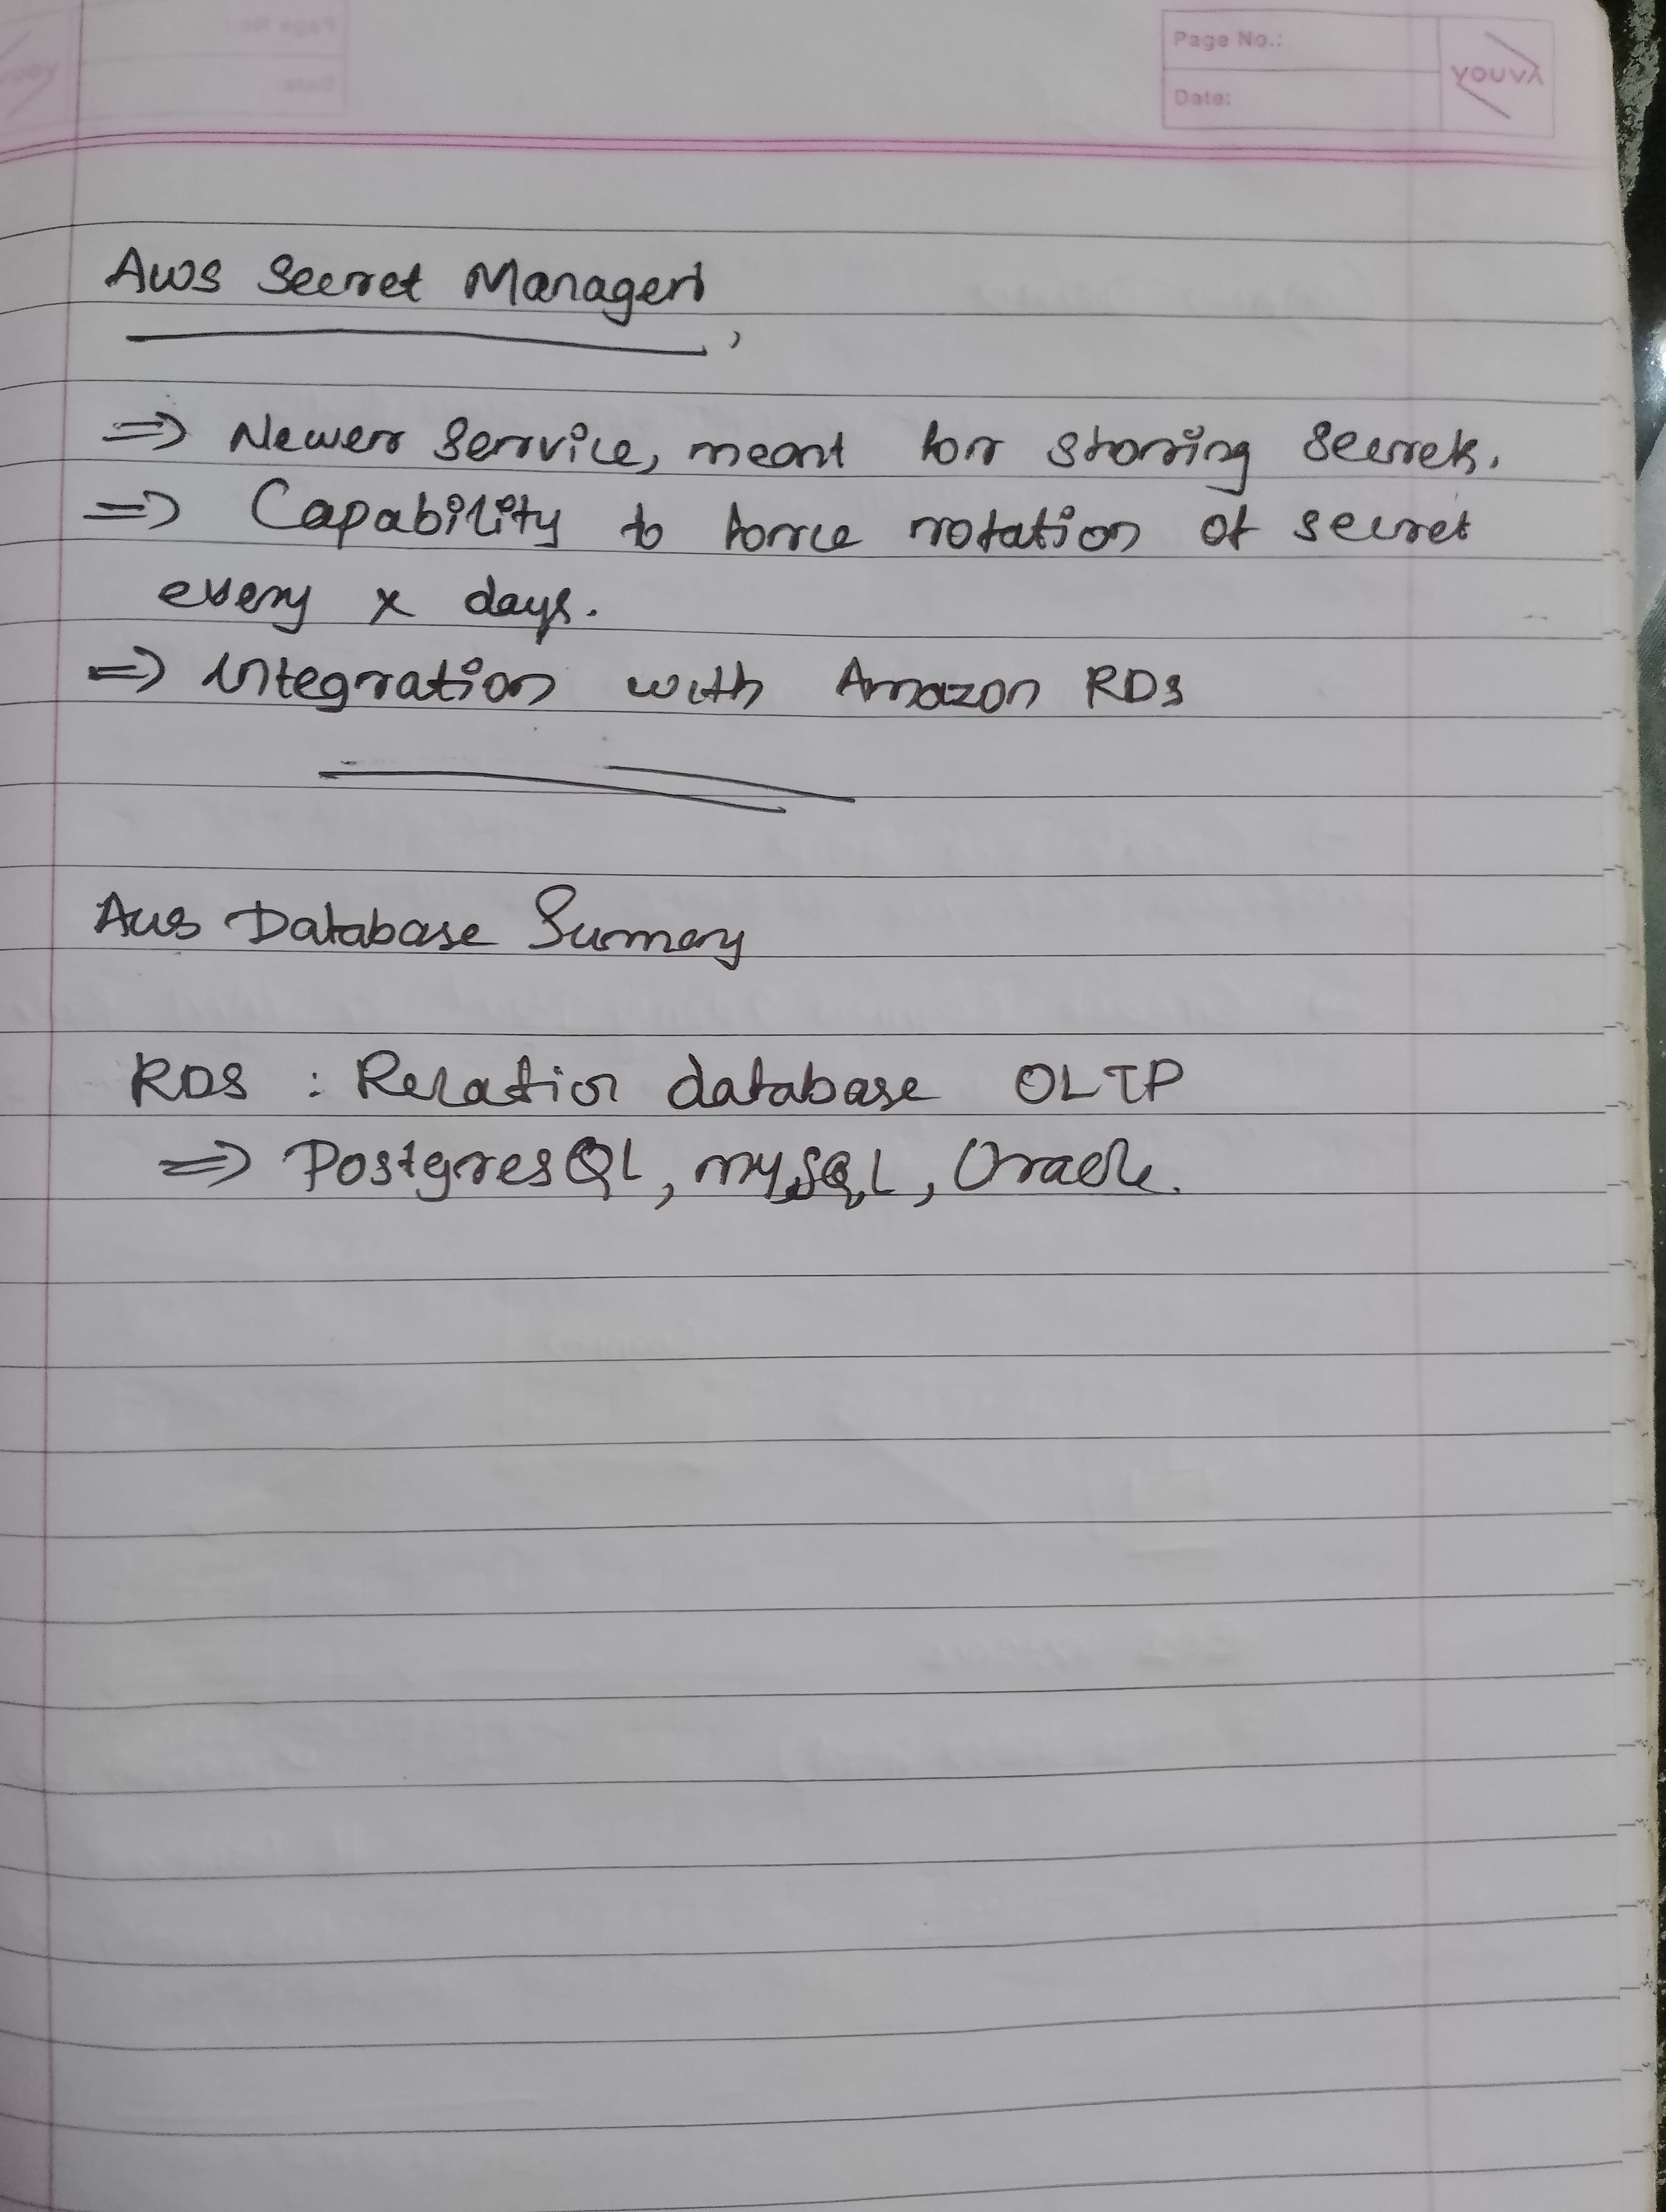 Page No.:
Date:
youva
Aws Secret Manager
⇒ Newer service, meant for storing secrets.
⇒ Capability to force rotation of secret
every x days.
⇒ Integration with Amazon RDS
Aws Database Summary
RDS : Relation database OLTP
⇒ PostgresQL, mySQL, Oracle.